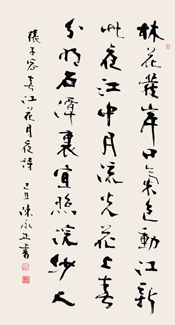 林花發岸口氣色動江新
此夜江中月流光花上春
分明石潭裏宜照浣紗人
張子容春江花月夜詩 己丑陳永正書